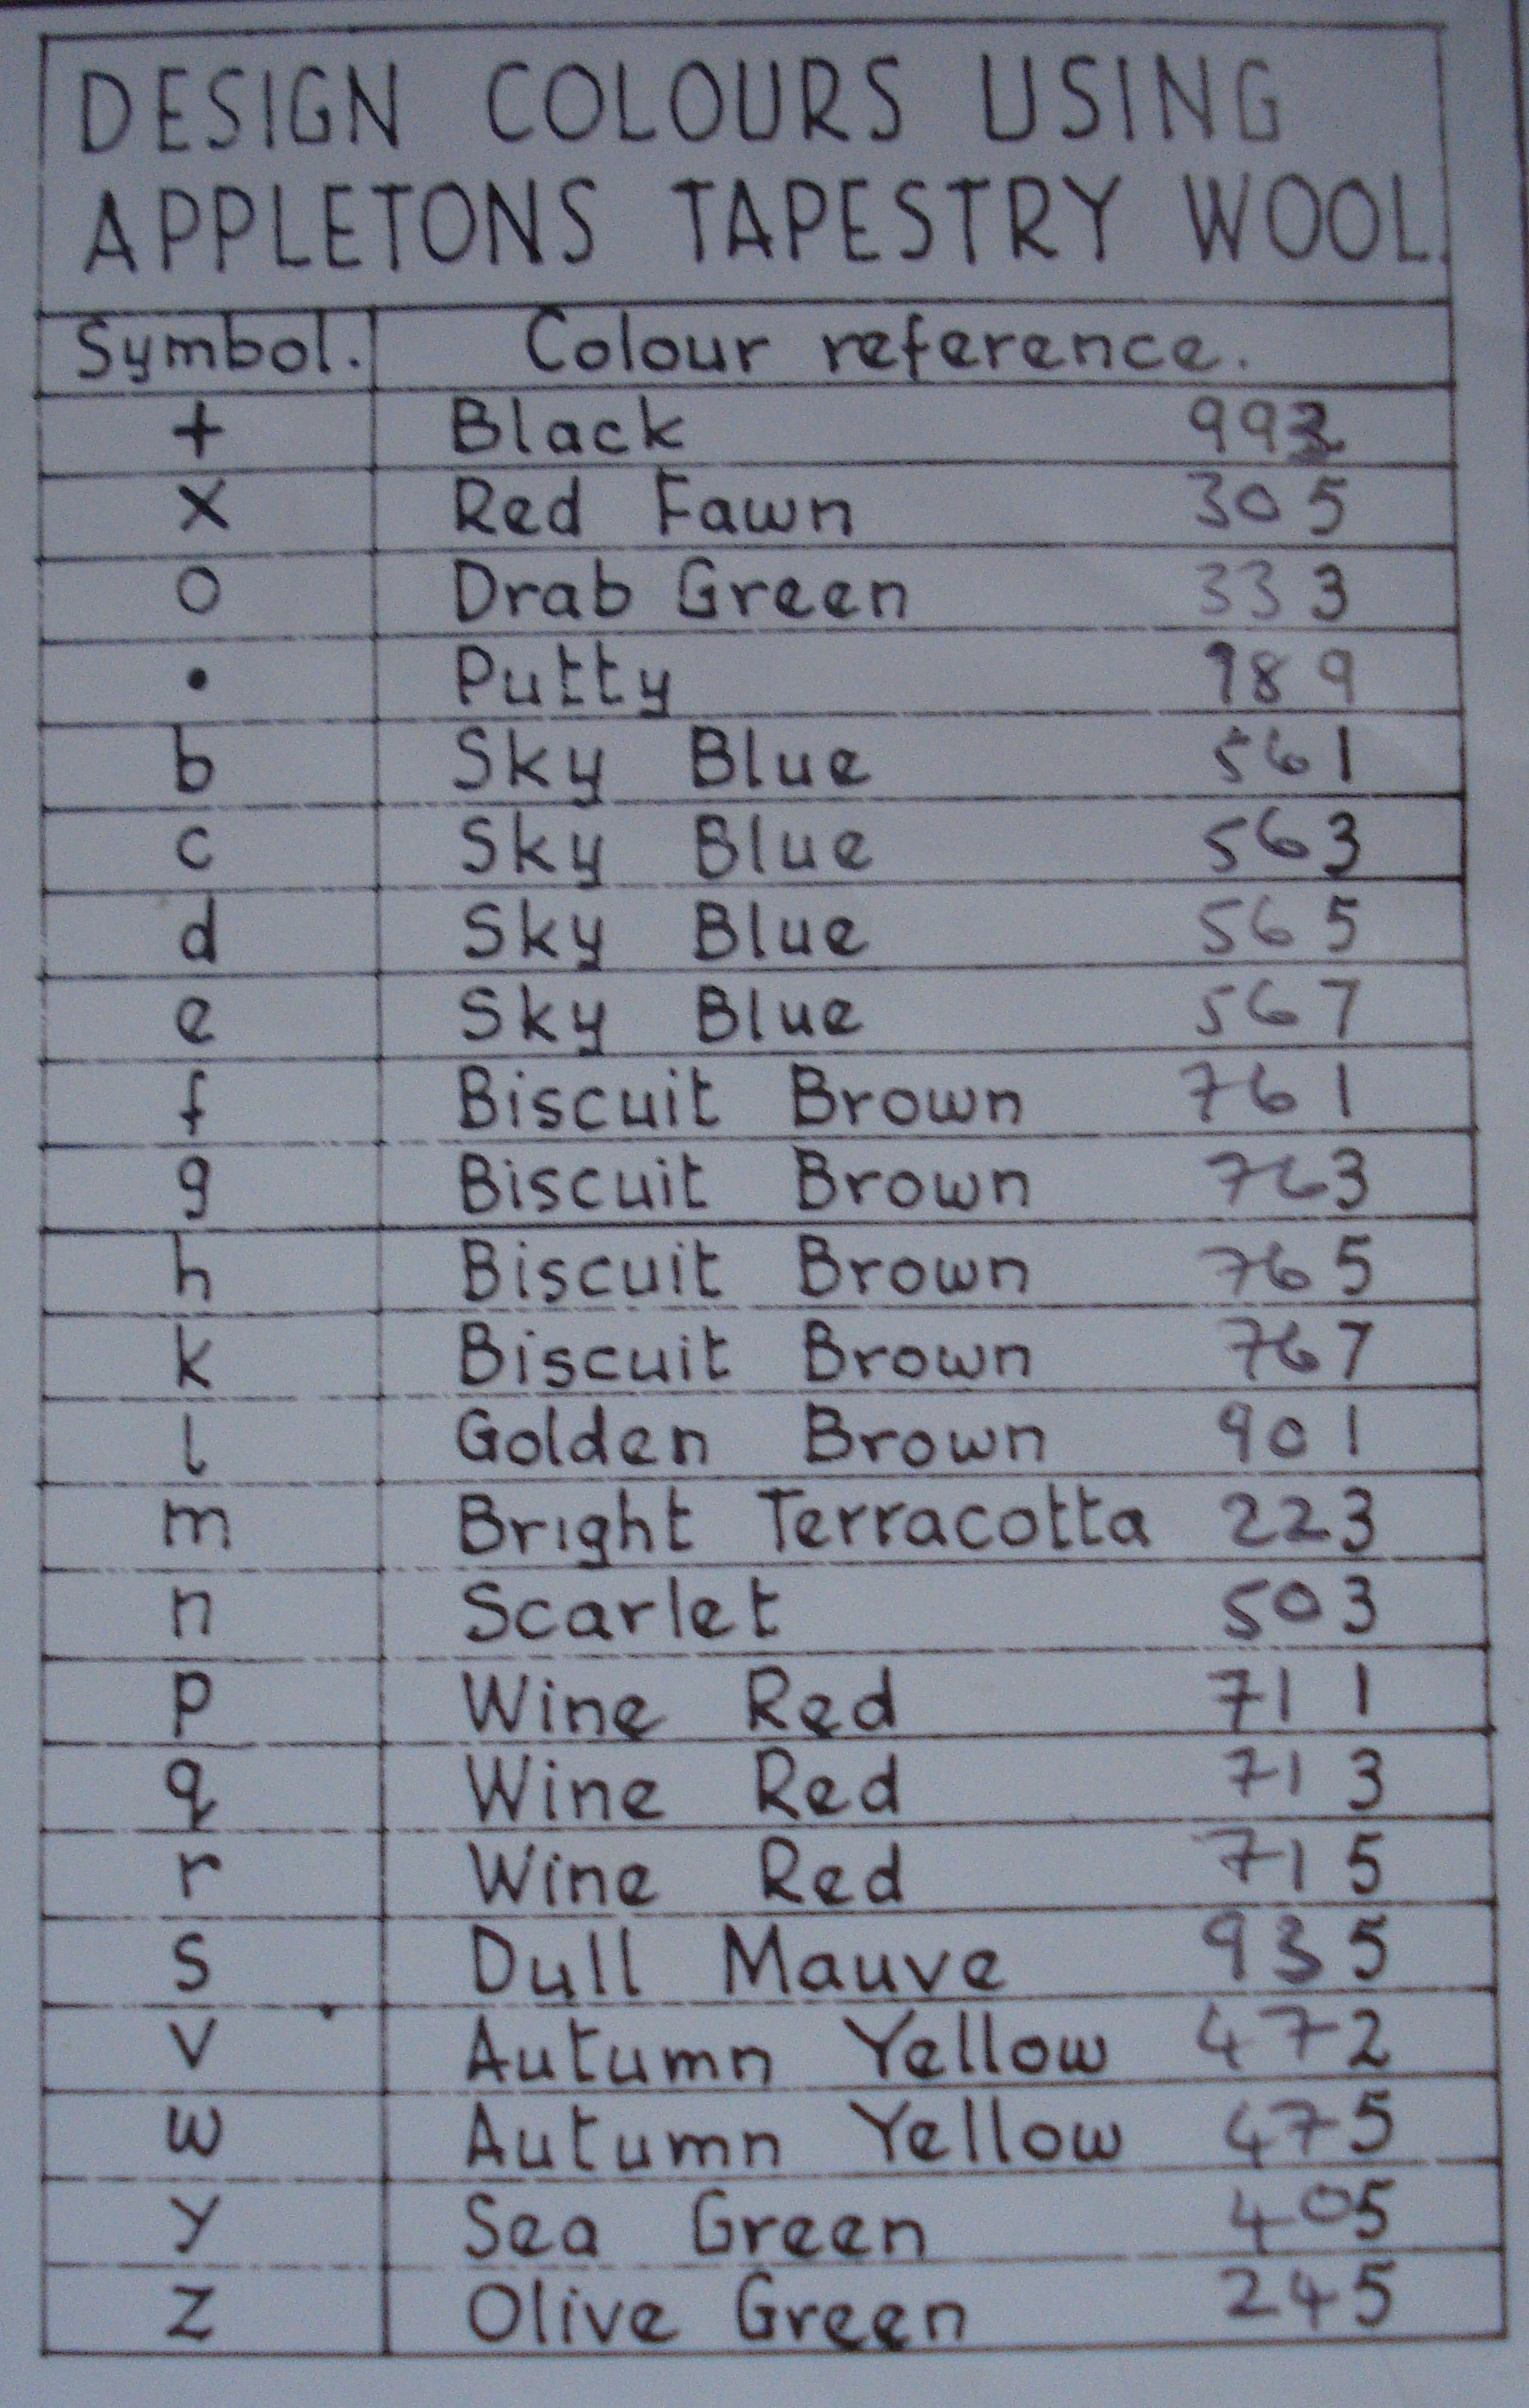 DESIGN COLOURS USING
APPLETONS TAPESTRY WOOL.
Symbol. Colour reference.
+ Black 992
x Red Fawn 305
o Drab Green 333
• Putty 989
b Sky Blue 561
c Sky Blue 563
d Sky Blue 565
e Sky Blue 567
f Biscuit Brown 761
g Biscuit Brown 763
h Biscuit Brown 765
k Biscuit Brown 767
l Golden Brown 901
m Bright Terracotta 223
n Scarlet 503
p Wine Red 711
q Wine Red 713
r Wine Red 715
s Dull Mauve 935
v Autumn Yellow 472
w Autumn Yellow 475
y Sea Green 405
z Olive Green 245